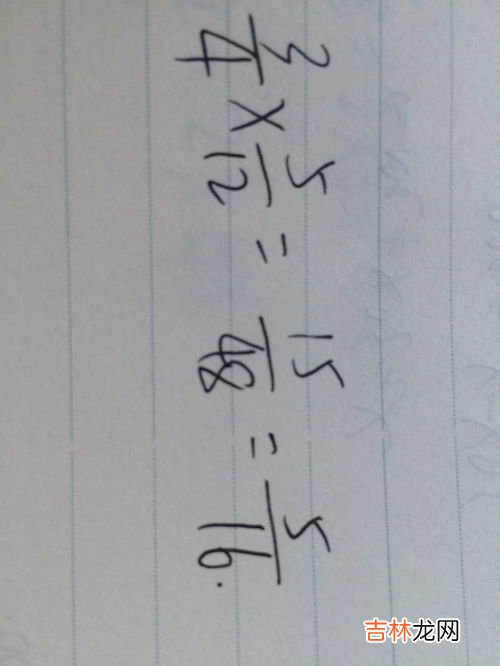 3/4 × 5/12 = 15/48 = 5/16.
吉林龙网